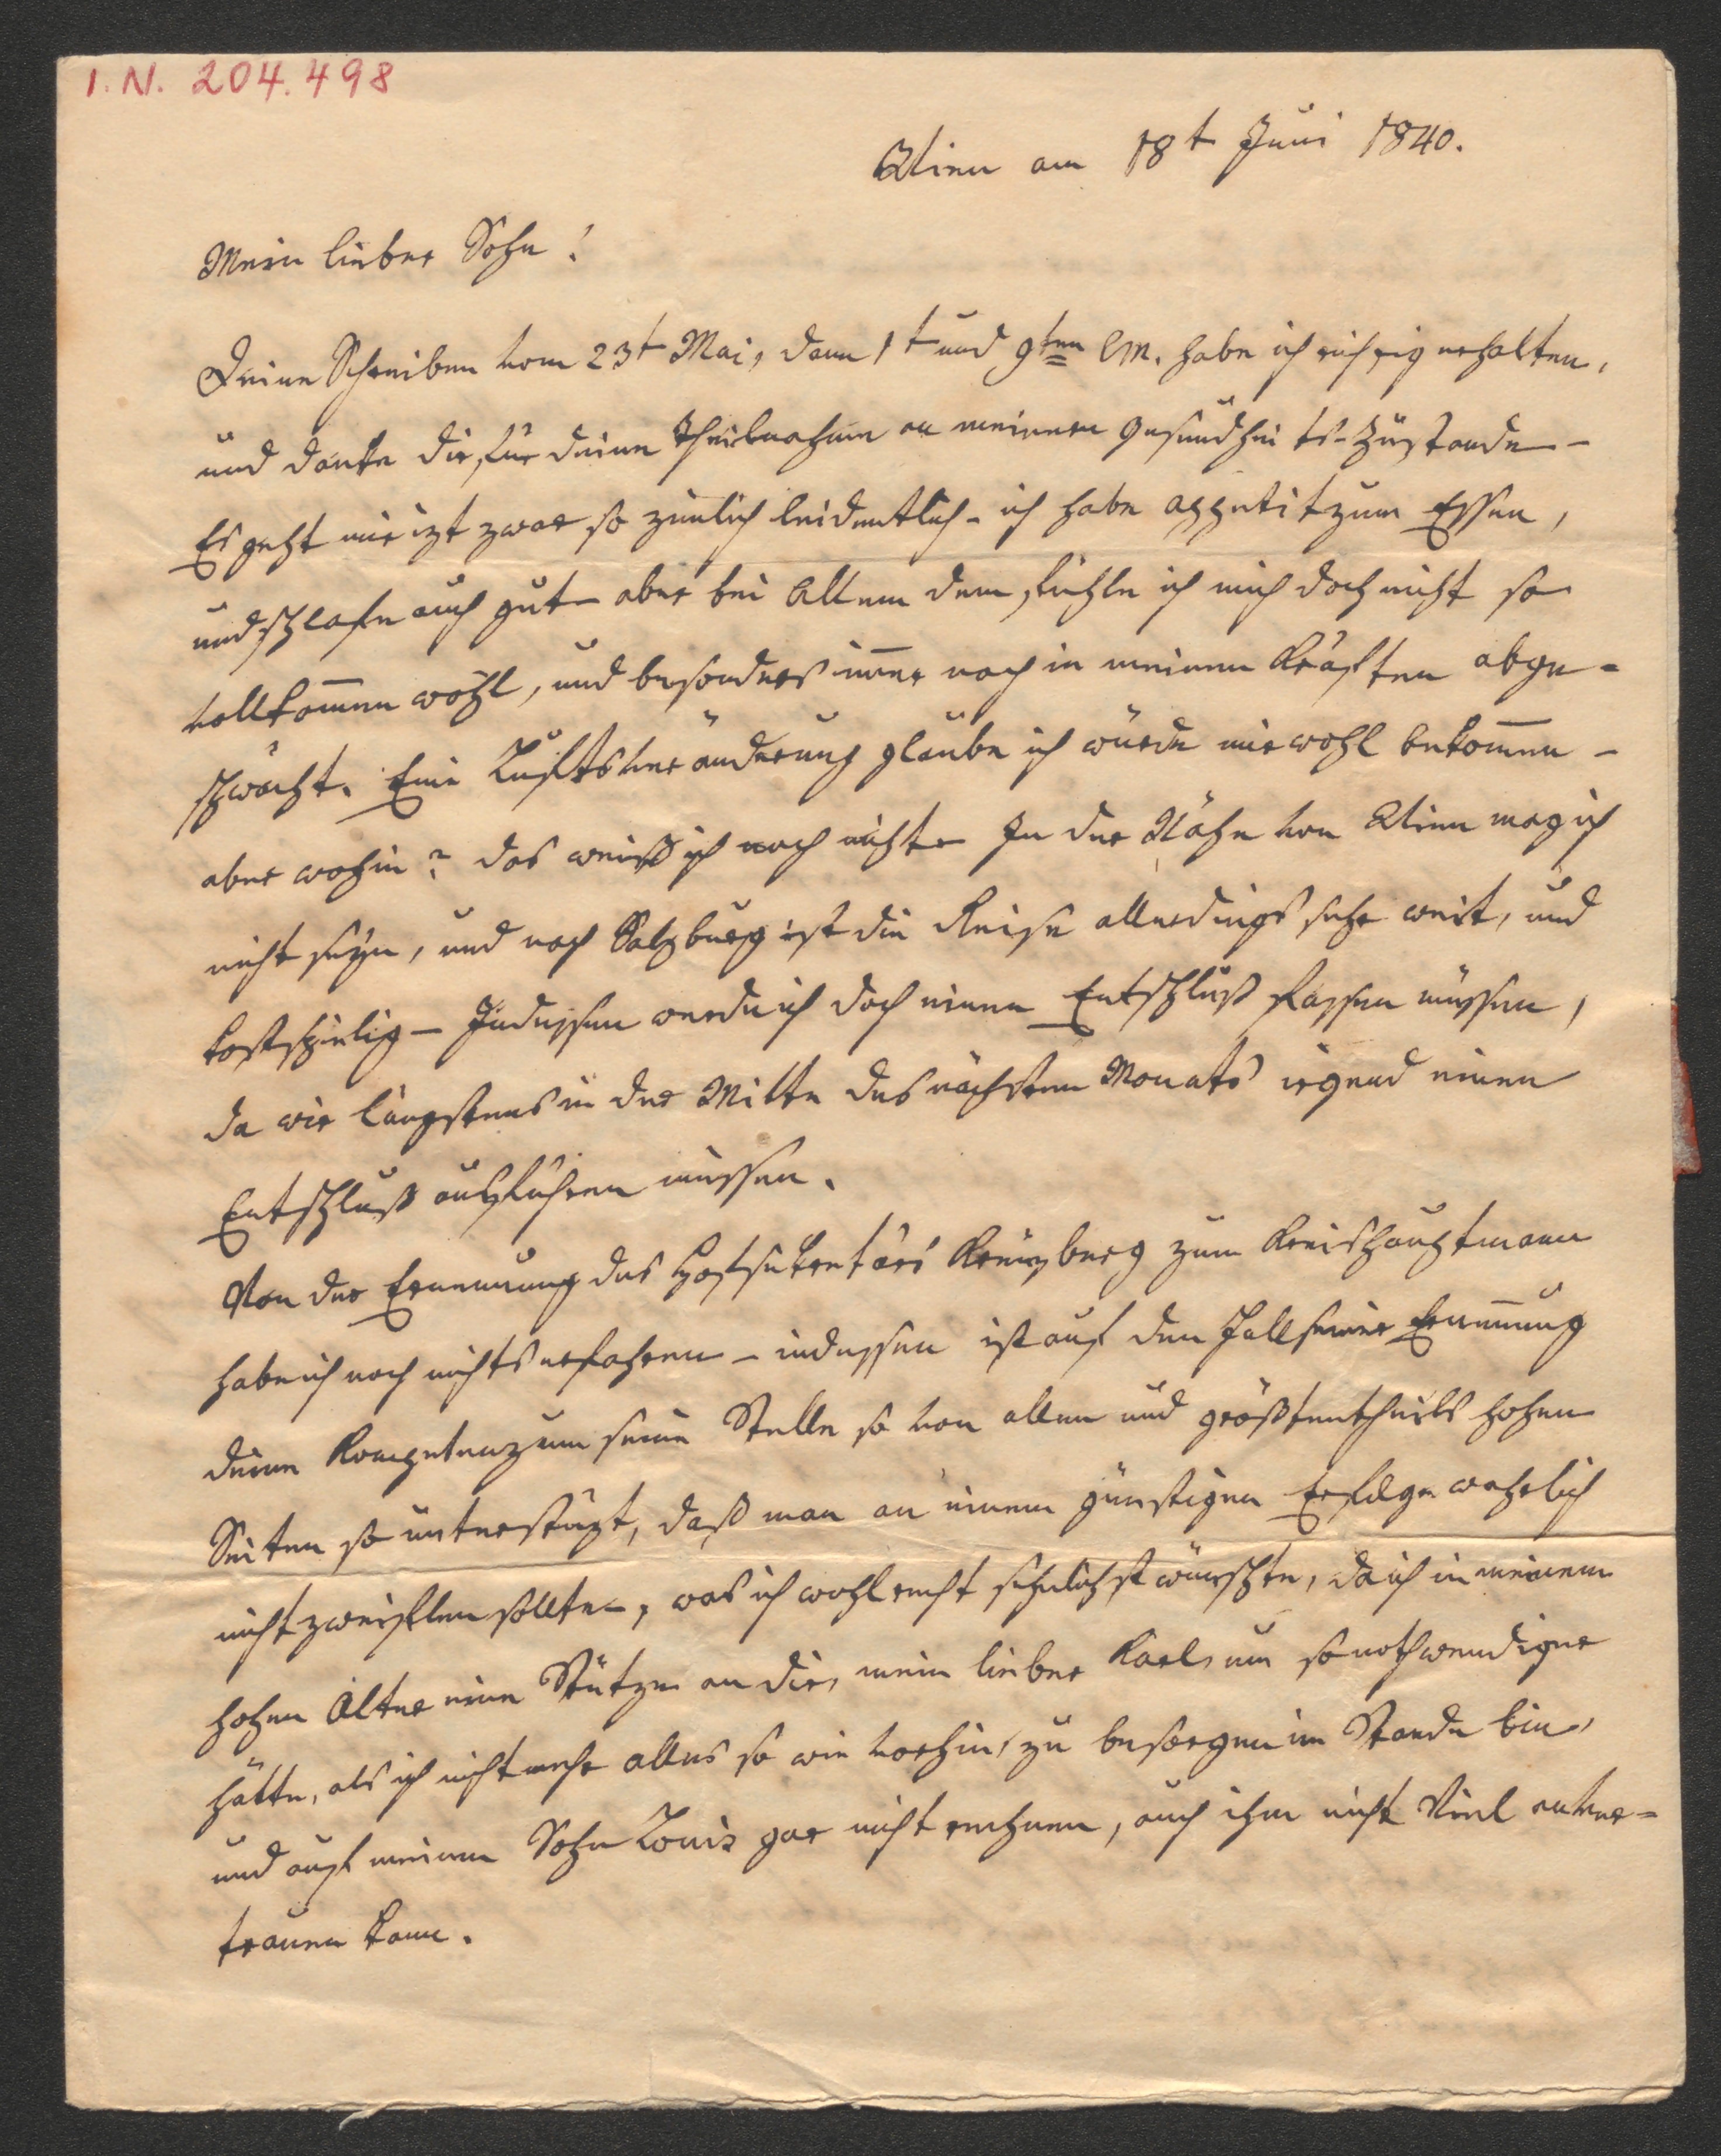 I. N. 204.498
Wien am 18t Juni 1840.
Mein lieber Sohn!
Deine Schreiben vom 23t Mai, dann 1t und 9ten lM. habe ich richtig erhalten,
und danke dir für deine Theilnahme an meinem Gesundheits-Zustande –
Es geht mir izt zwar so zimlich leidentlich – ich habe appetit zum Essen,
und schlafe auch gut – aber bei Allem dem fühle ich mich doch nicht so
vollkom̅en wohl, und besonders im̅er noch in meinen Kräften abge-
schwächt. Eine Luftsveränderung glaube ich würde mir wohl bekom̅en –
aber wohin? das weiß ich noch nicht – In der Nähe von Wien mag ich
nicht seyn, und nach Salzburg ist die Reise allerdings sehr weit, und
kostspielig – Indessen werde ich doch einen Entschluß fassen müssen,
da wir längstens in der Mitte des nächsten Monats irgend einen
Entschluß ausführen müssen.
Von der Ernennung des Hofsekretärs Kreuzberg zum Kreishauptmann
habe ich noch nichts erfahren – indessen ist auf den Fall seiner Ernen̅ung
deine Kompetenz um seine Stelle so von allen und größtentheils hohen
Seiten so unterstüzt, daß man an einem günstigen Erfolge wahrlich
nicht zweiflen sollte –, was ich wohl recht sehnlichst wünschte, da ich in meinem
hohen Alter eine Stütze an dir, mein lieber Karl, um so nothwendiger
hätte, als ich nicht mehr alles so wie vorhin, zu besorgen im Stande bin,
und auf meinen Sohn Louis gar nicht rechnen, auch ihm nicht Viel anver-
trauen kann.